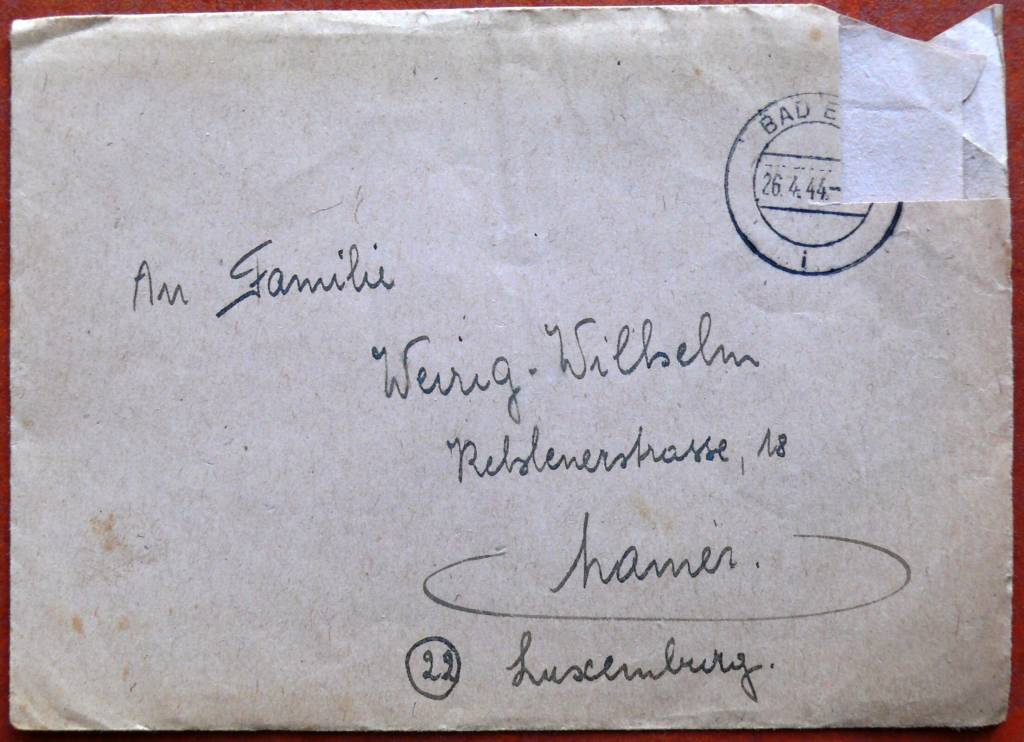 BAD E
26.4.44.-
i
An Familie
Weirig-Wilhelm
18
Mamer.
22 Luxemburg.